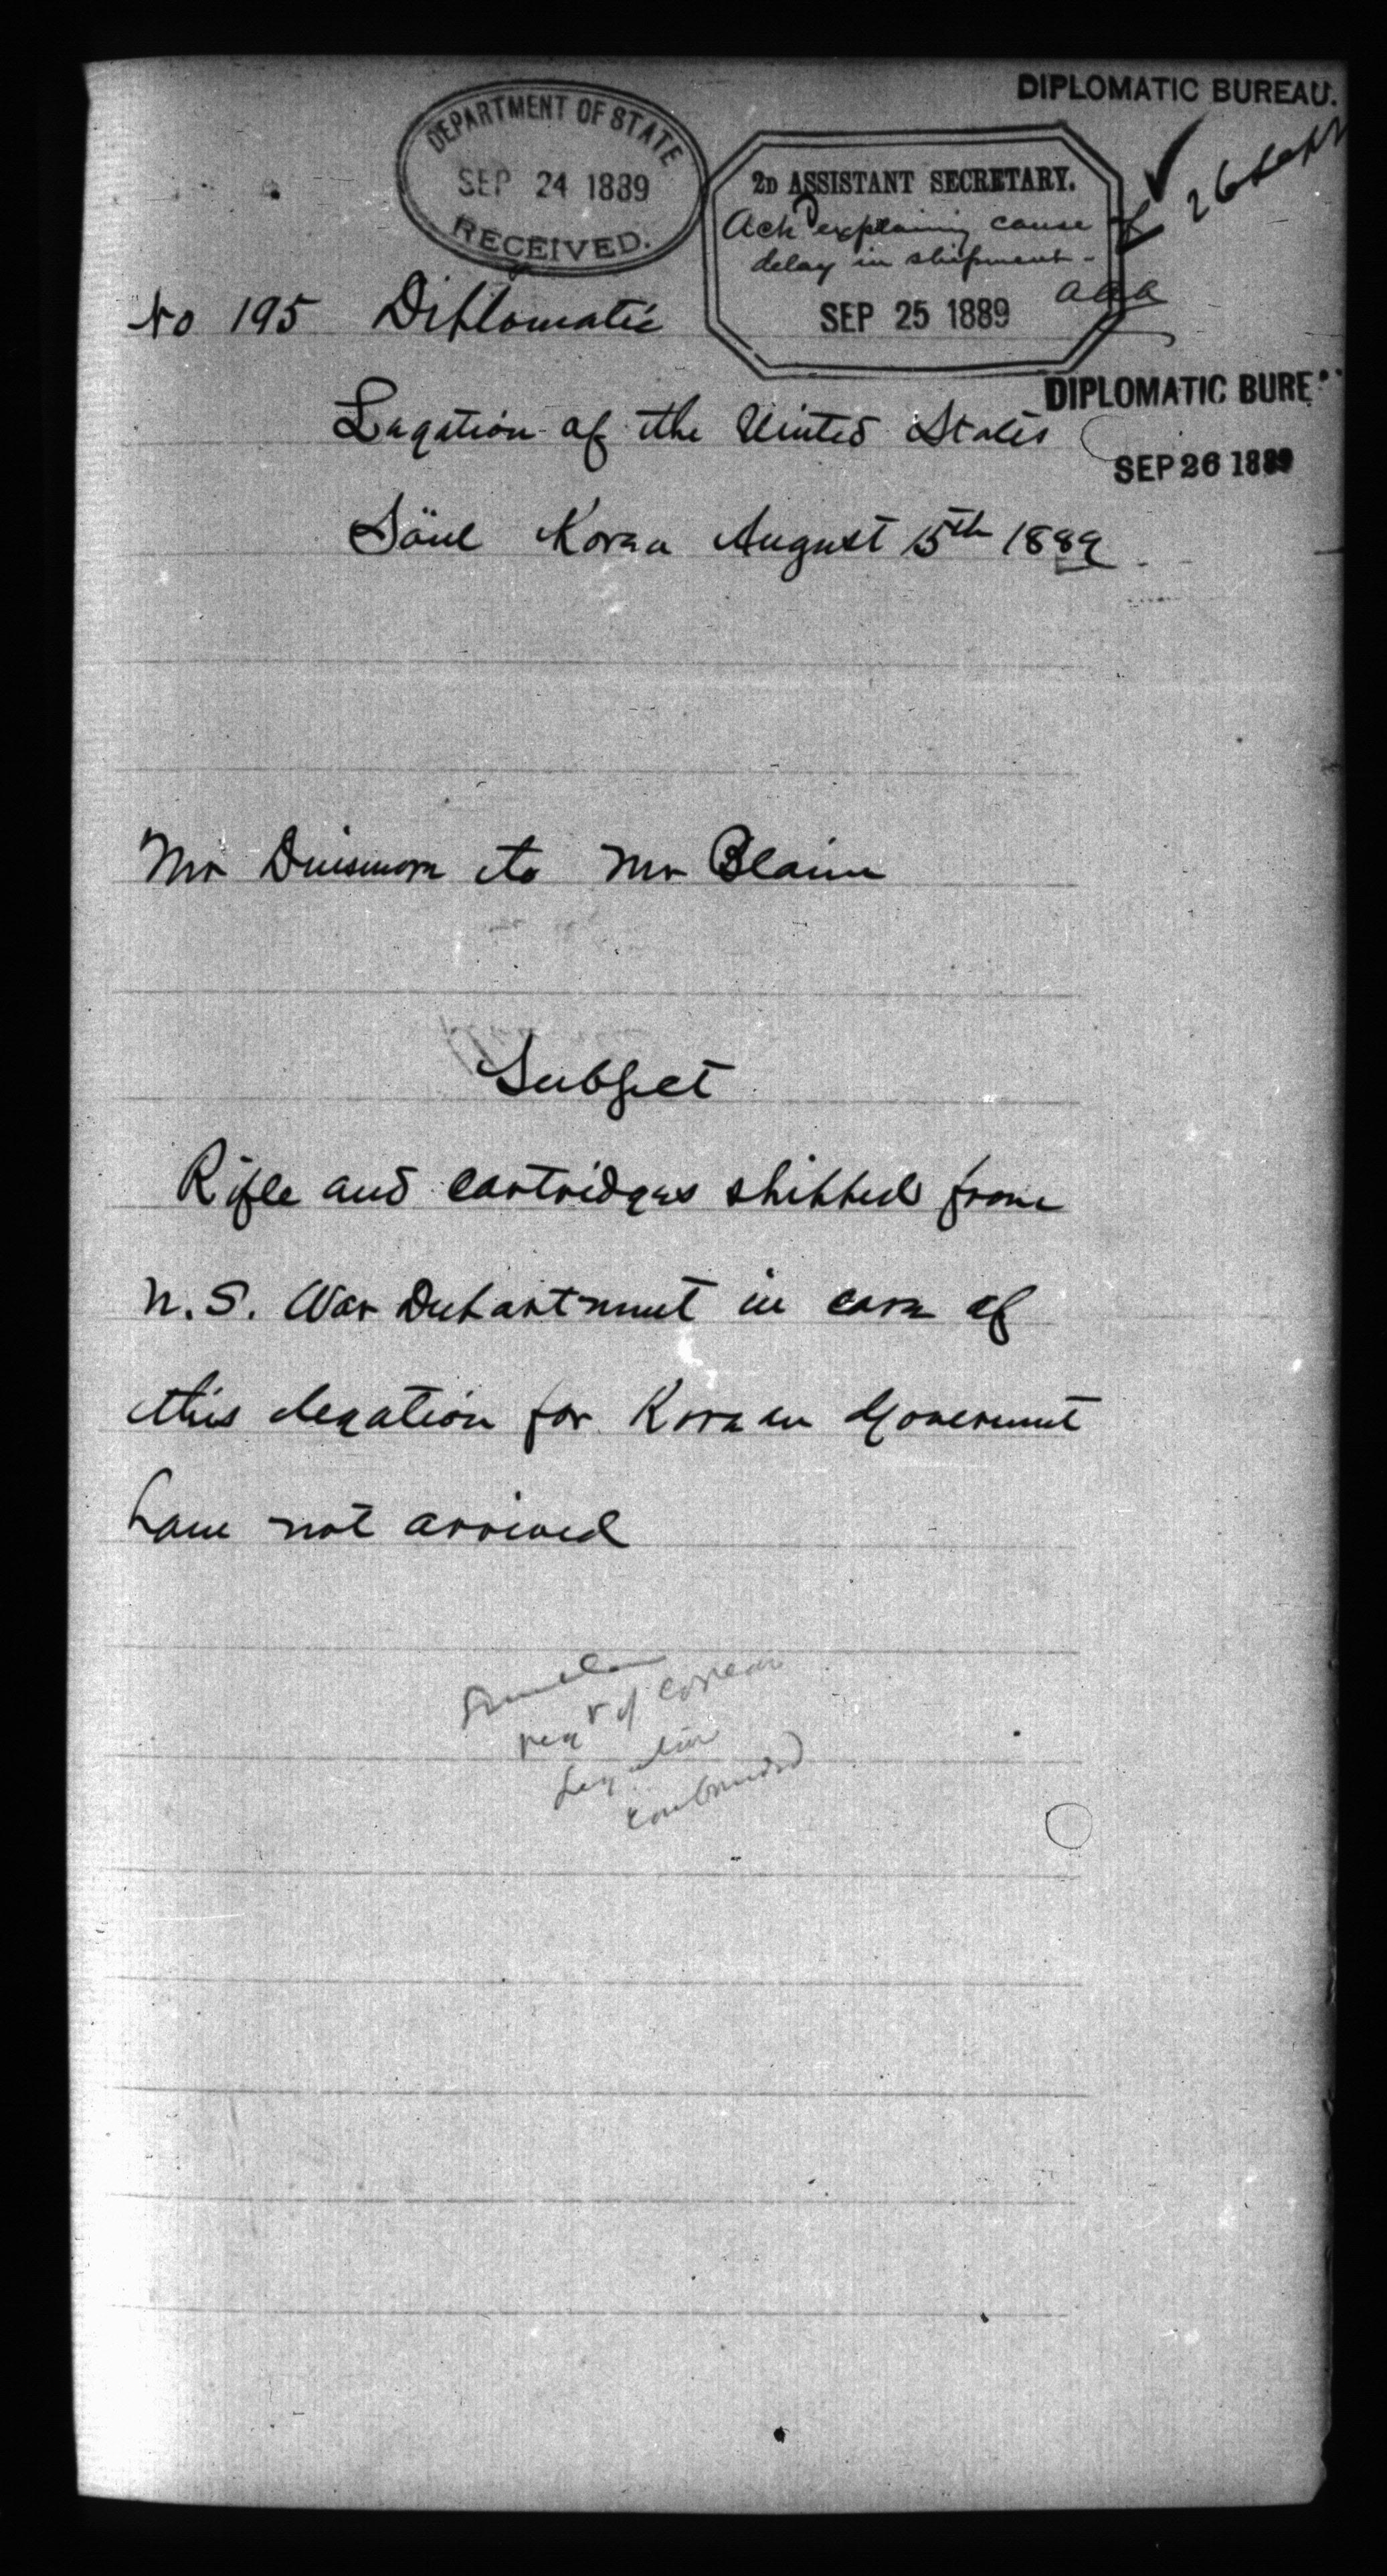 DIPLOMATIC BUREAU.
DEPARTMENT OF STATE
SEP 24 1889
RECEIVED.
2D ASSISTANT SECRETARY.
Ack explaining cause of
delay in shipment -
SEP 25 1889
AAA
26 Sept
No 195 Diplomatic
DIPLOMATIC BURE
SEP 26 1889
Legation of the United States
Söul Korea August 15th 1889
Mr Dinsmore to Mr Blaine
Subject
Rifle and cartridges shipped from
U.S. War Department in care of
this legation for Korean Government
have not arrived
of Corean
Legation